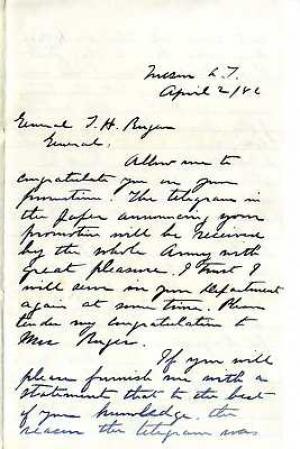 Tucson A. T.
April 2/86
General T. H. Ruger
General,
Allow me to
congratulate you on your
promotion. The telegram in
the paper announcing your
promotion will be received
by the whole Army with
great pleasure. I trust I
will serve in your Department
again at some time. Please
tender my congratulation to
Mrs Ruger.
If you will
please furnish me with a
statement that to the best
of your knowledge, the
reason the telegram was